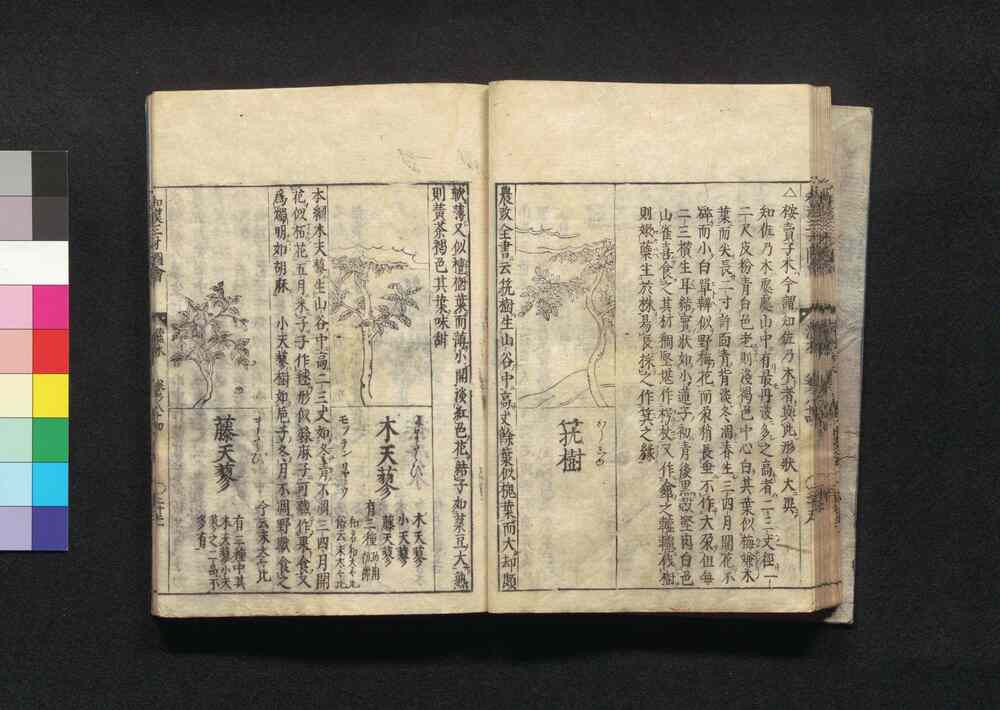 △桉賣子木今俗知佐乃木者與此形狀大異
知佐乃木處處山中有最丹波多之高者二三丈徑一
二尺皮粉青白色老則淺褐色中心白其葉似梅嫌木
葉而尖長二寸許面青背淡冬凋春生三四月開花不
碎而小白單瓣似野梅花而蒂稍長垂不作大朶但每
二三攢生耳結實狀如小蓮子初青後黒殼堅肉白色
山雀喜食之其材稠堅堪作杖又作傘之轆轤伐樹
則嫩蘖生於株易長採之作箕之緣
筅樹
農政全書云筅樹生山谷中高丈餘葉似槐葉而大却頗
軟薄又似檀樹葉而薄小開淡紅色花結子如菉豆大熟
則黃茶褐色其葉味甜
木天蓼
モツテン リヤウ
木天蓼
小天蓼
藤天蓼
有三種
本綱木天蓼生山谷中高二三丈如冬青不凋三四月開
花似柘花五月采子子作毬形似䔛麻子可藏作果食又
爲燭明如胡麻 小天蓼樹如巵子冬月不凋野獸食之
藤天蓼
今云末太太比
有三種中其
木天蓼小天
蓼之二髙不
多有
和漢三才圖會